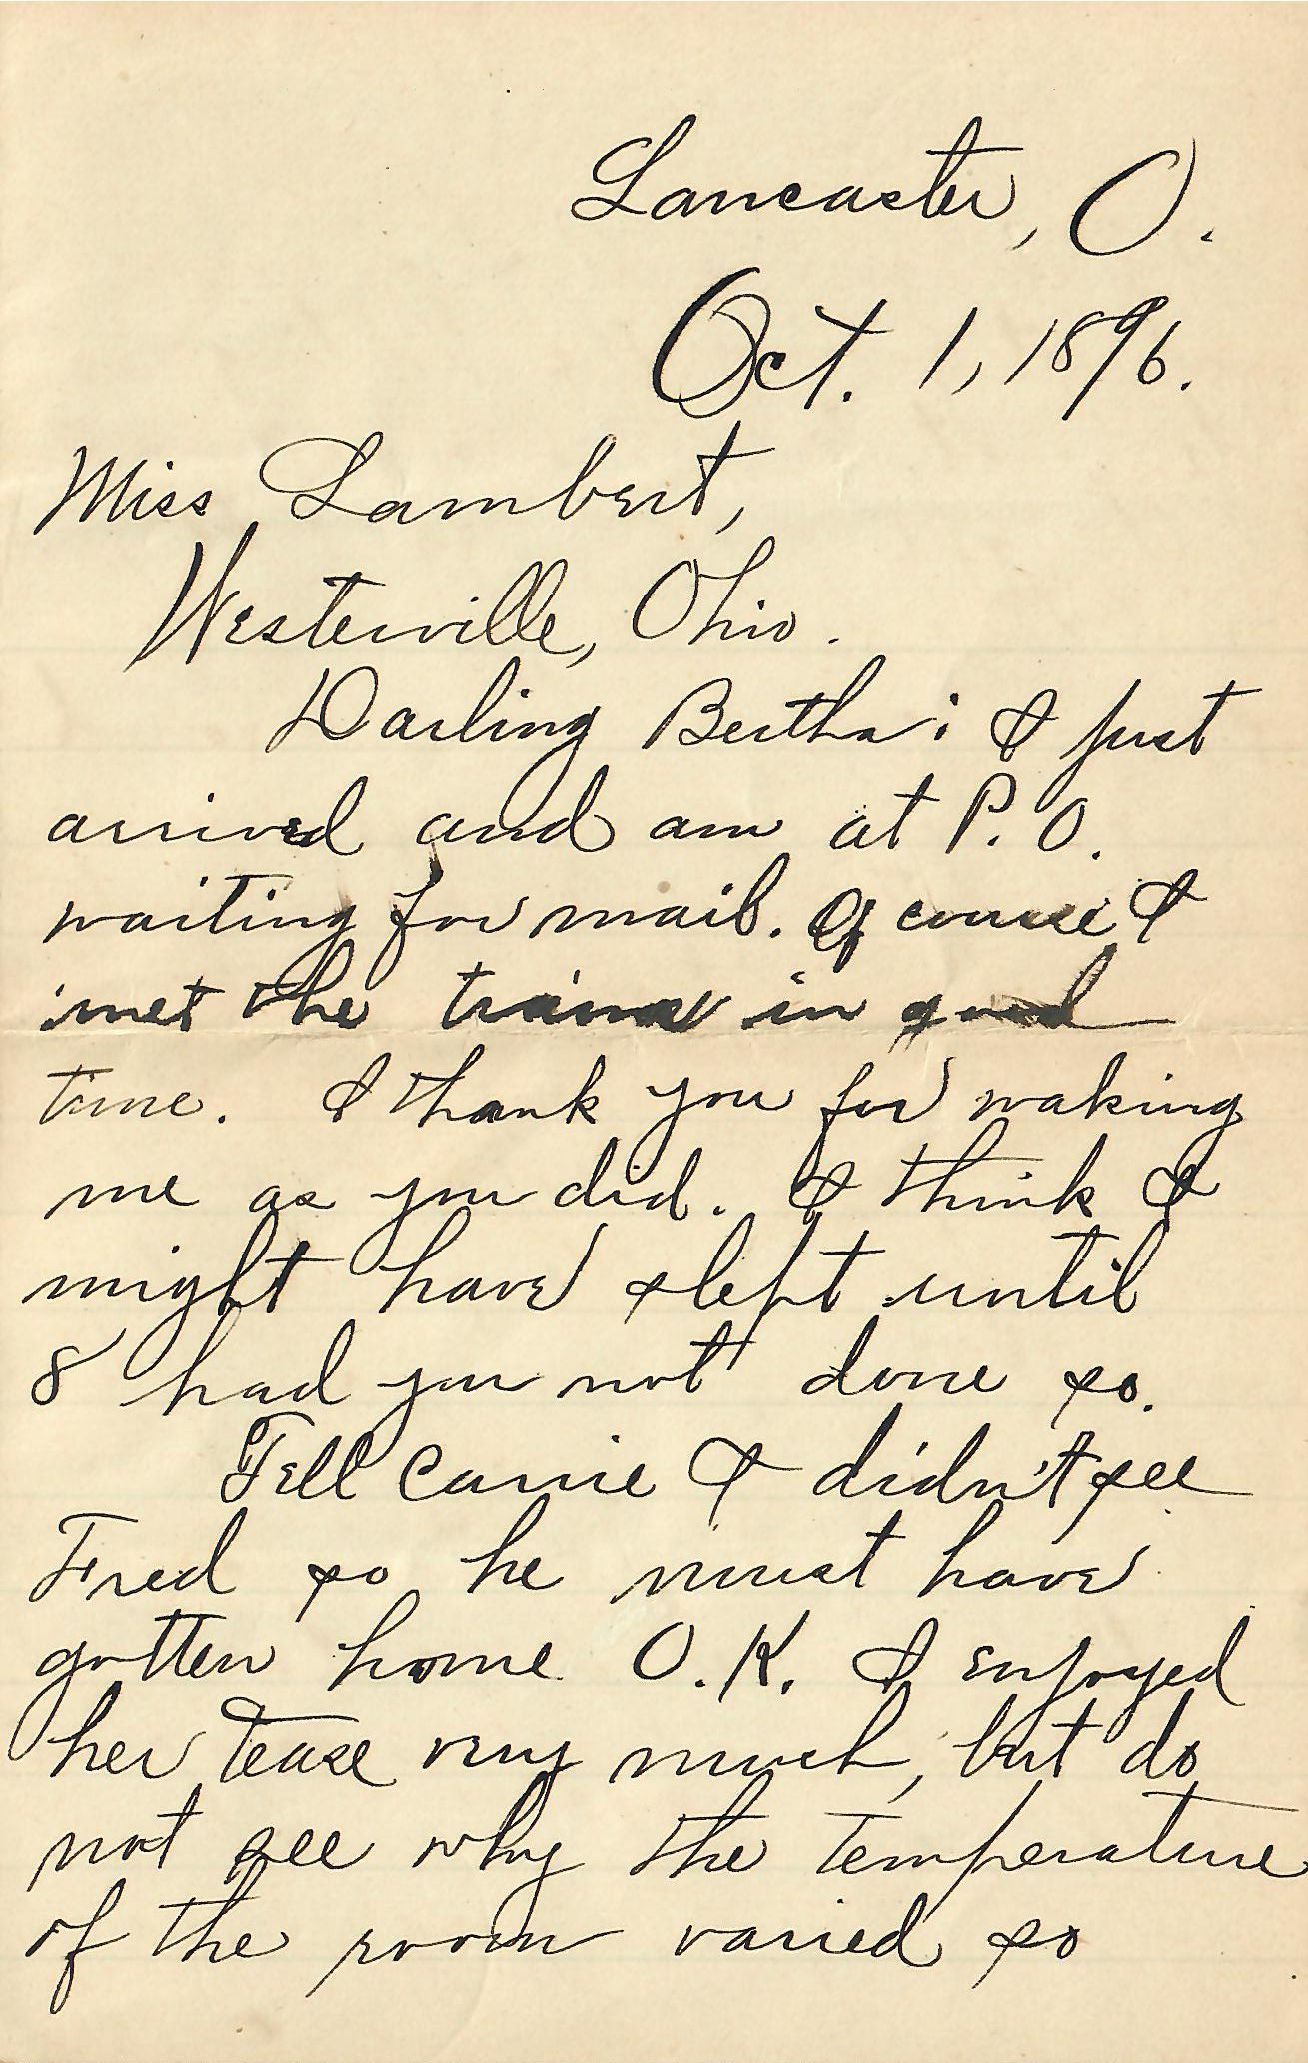 Lancaster, O.
Oct. 1, 1896.
Miss Lambert,
Westerville, Ohio.
Darling Bertha: I just
arrived and am at P.O.
waiting for mail. Of course I
met the train in good
time. I thank you for waking
me as you did. I think I
might have slept until
8 had you not done so.
Tell Carrie I didn't see
Fred so he must have
gotten home O.K. I enjoyed
her tease very much, but do
not see why the temperature
of the room varied so